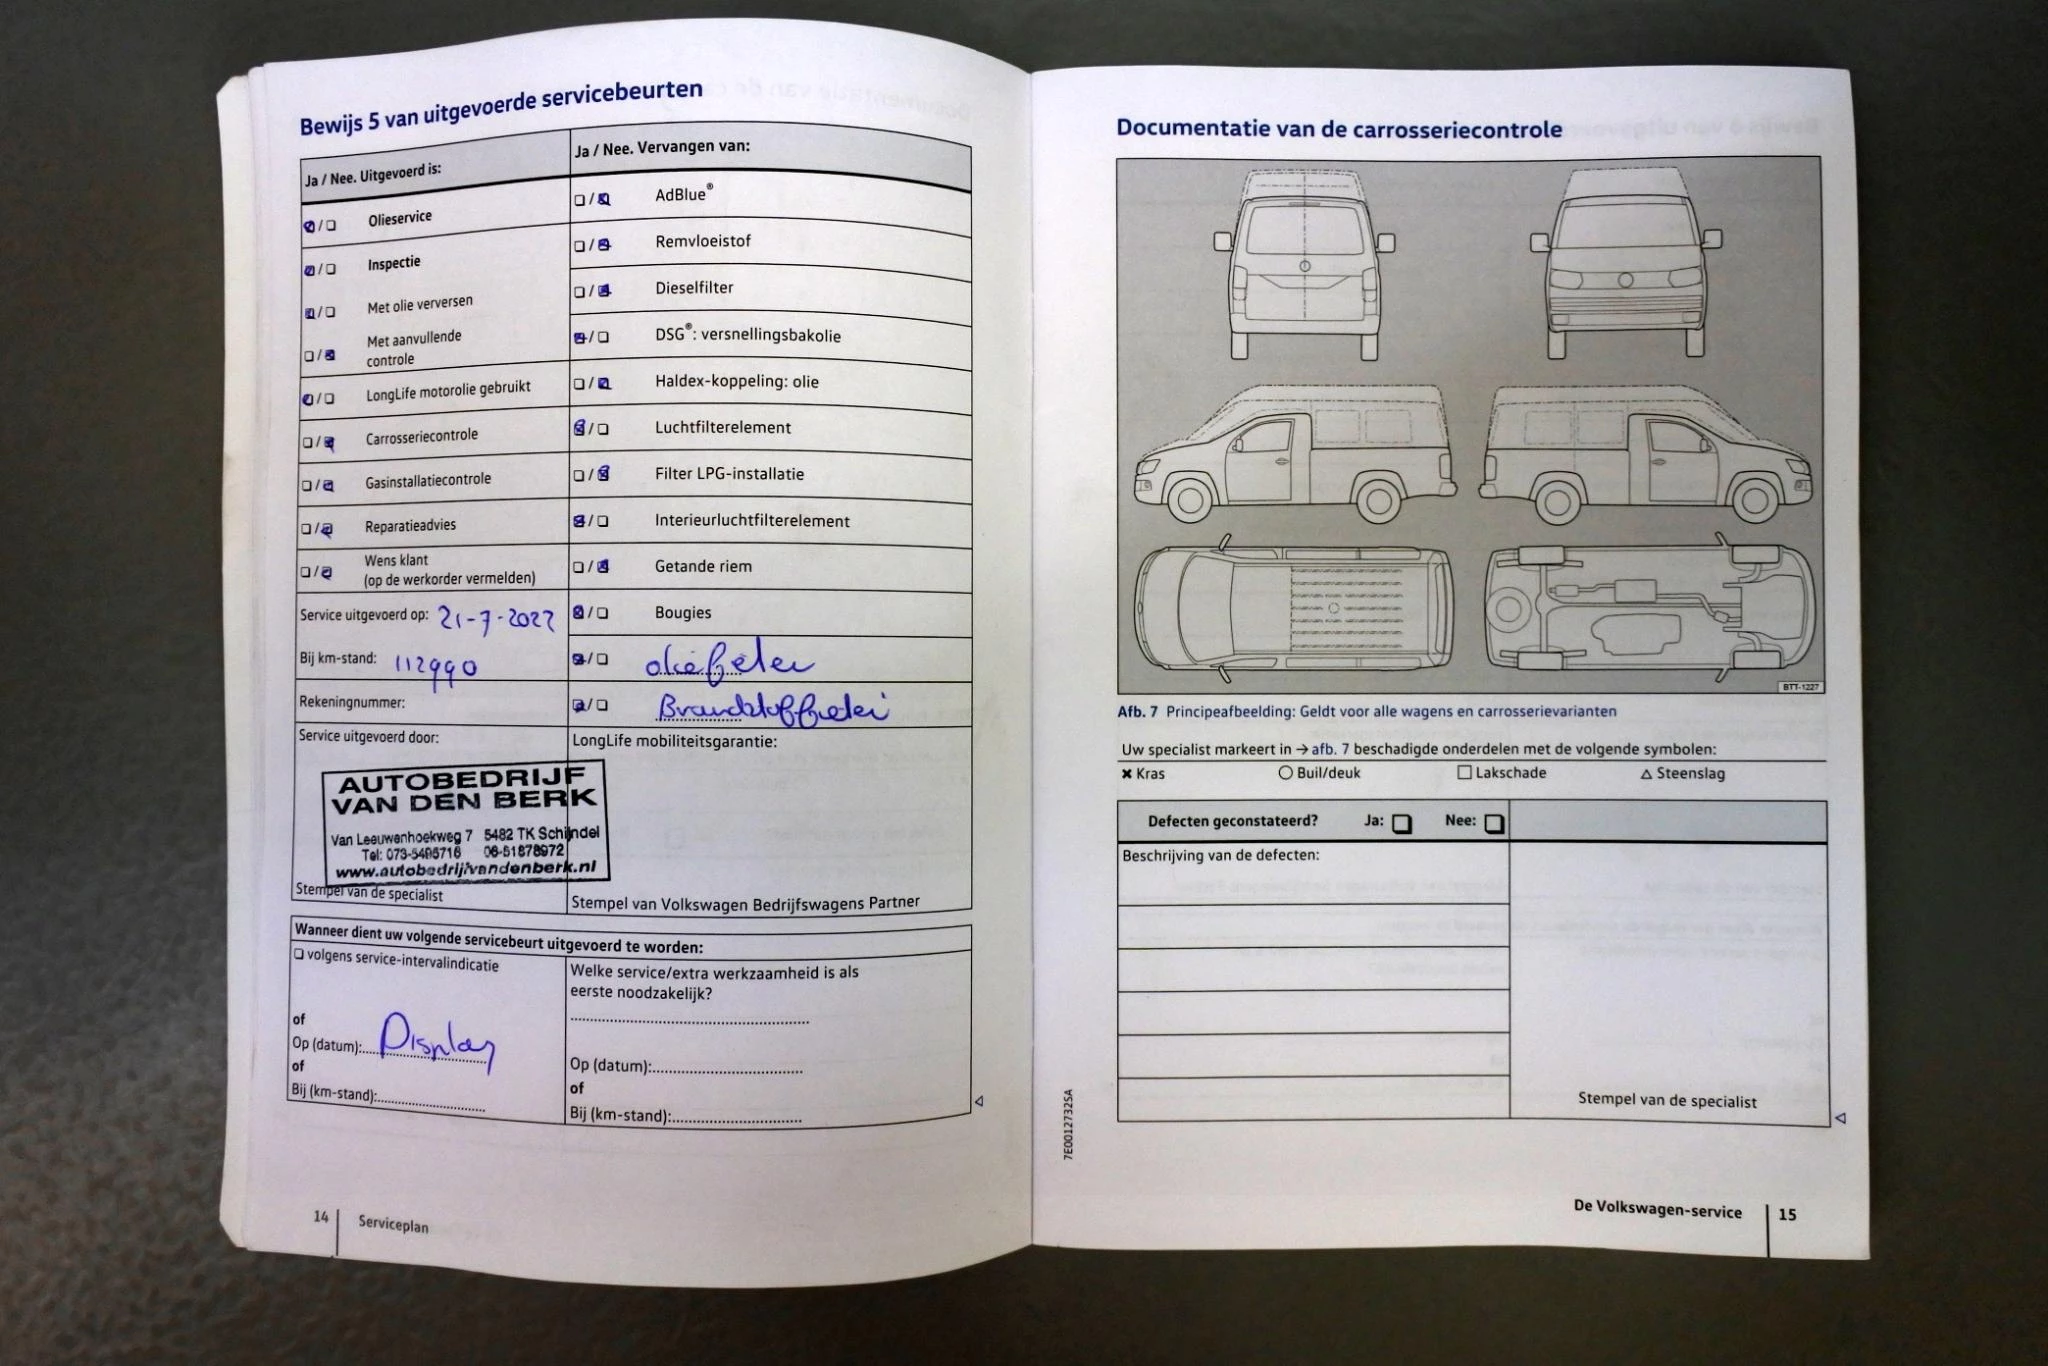 Bewijs 5 van uitgevoerde servicebeurten
Ja / Nee. Uitgevoerd is:
Olieservice
Inspectie
Met olie verversen
Met aanvullende
controle
LongLife motorolie gebruikt
Carrosseriecontrole
Gasinstallatiecontrole
Reparatieadvies
Wens klant
(op de werkorder vermelden)
Service uitgevoerd op: 21-7-2022
Bij km-stand: 112990
Rekeningnummer:
Ja / Nee. Vervangen van:
AdBlue®
Remvloeistof
Dieselfilter
DSG®: versnellingsbakolie
Haldex-koppeling: olie
Luchtfilterelement
Filter LPG-installatie
Interieurluchtfilterelement
Getande riem
Bougies
oliefilter
Brandstoffilter
Service uitgevoerd door:
AUTOBEDRIJF
VAN DEN BERK
Van Leeuwenhoekweg 7 5482 TK Schijndel
Tel: 073-5495716 06-51878972
www.autobedrijfvandenberk.nl
Stempel van de specialist
LongLife mobiliteitsgarantie:
Stempel van Volkswagen Bedrijfswagens Partner
Wanneer dient uw volgende servicebeurt uitgevoerd te worden:
volgens service-intervalindicatie
of
Op (datum): Display
of
Bij (km-stand):
Welke service/extra werkzaamheid is als
eerste noodzakelijk?
Op (datum):
of
Bij (km-stand):
14 Serviceplan
Documentatie van de carrosseriecontrole
BTT-1227
Afb. 7 Principeafbeelding: Geldt voor alle wagens en carrosserievarianten
Uw specialist markeert in → afb. 7 beschadigde onderdelen met de volgende symbolen:
✖ Kras ○ Buil/deuk □ Lakschade △ Steenslag
Defecten geconstateerd? Ja: Nee:
Beschrijving van de defecten:
Stempel van de specialist
7E0012732SA
De Volkswagen-service 15